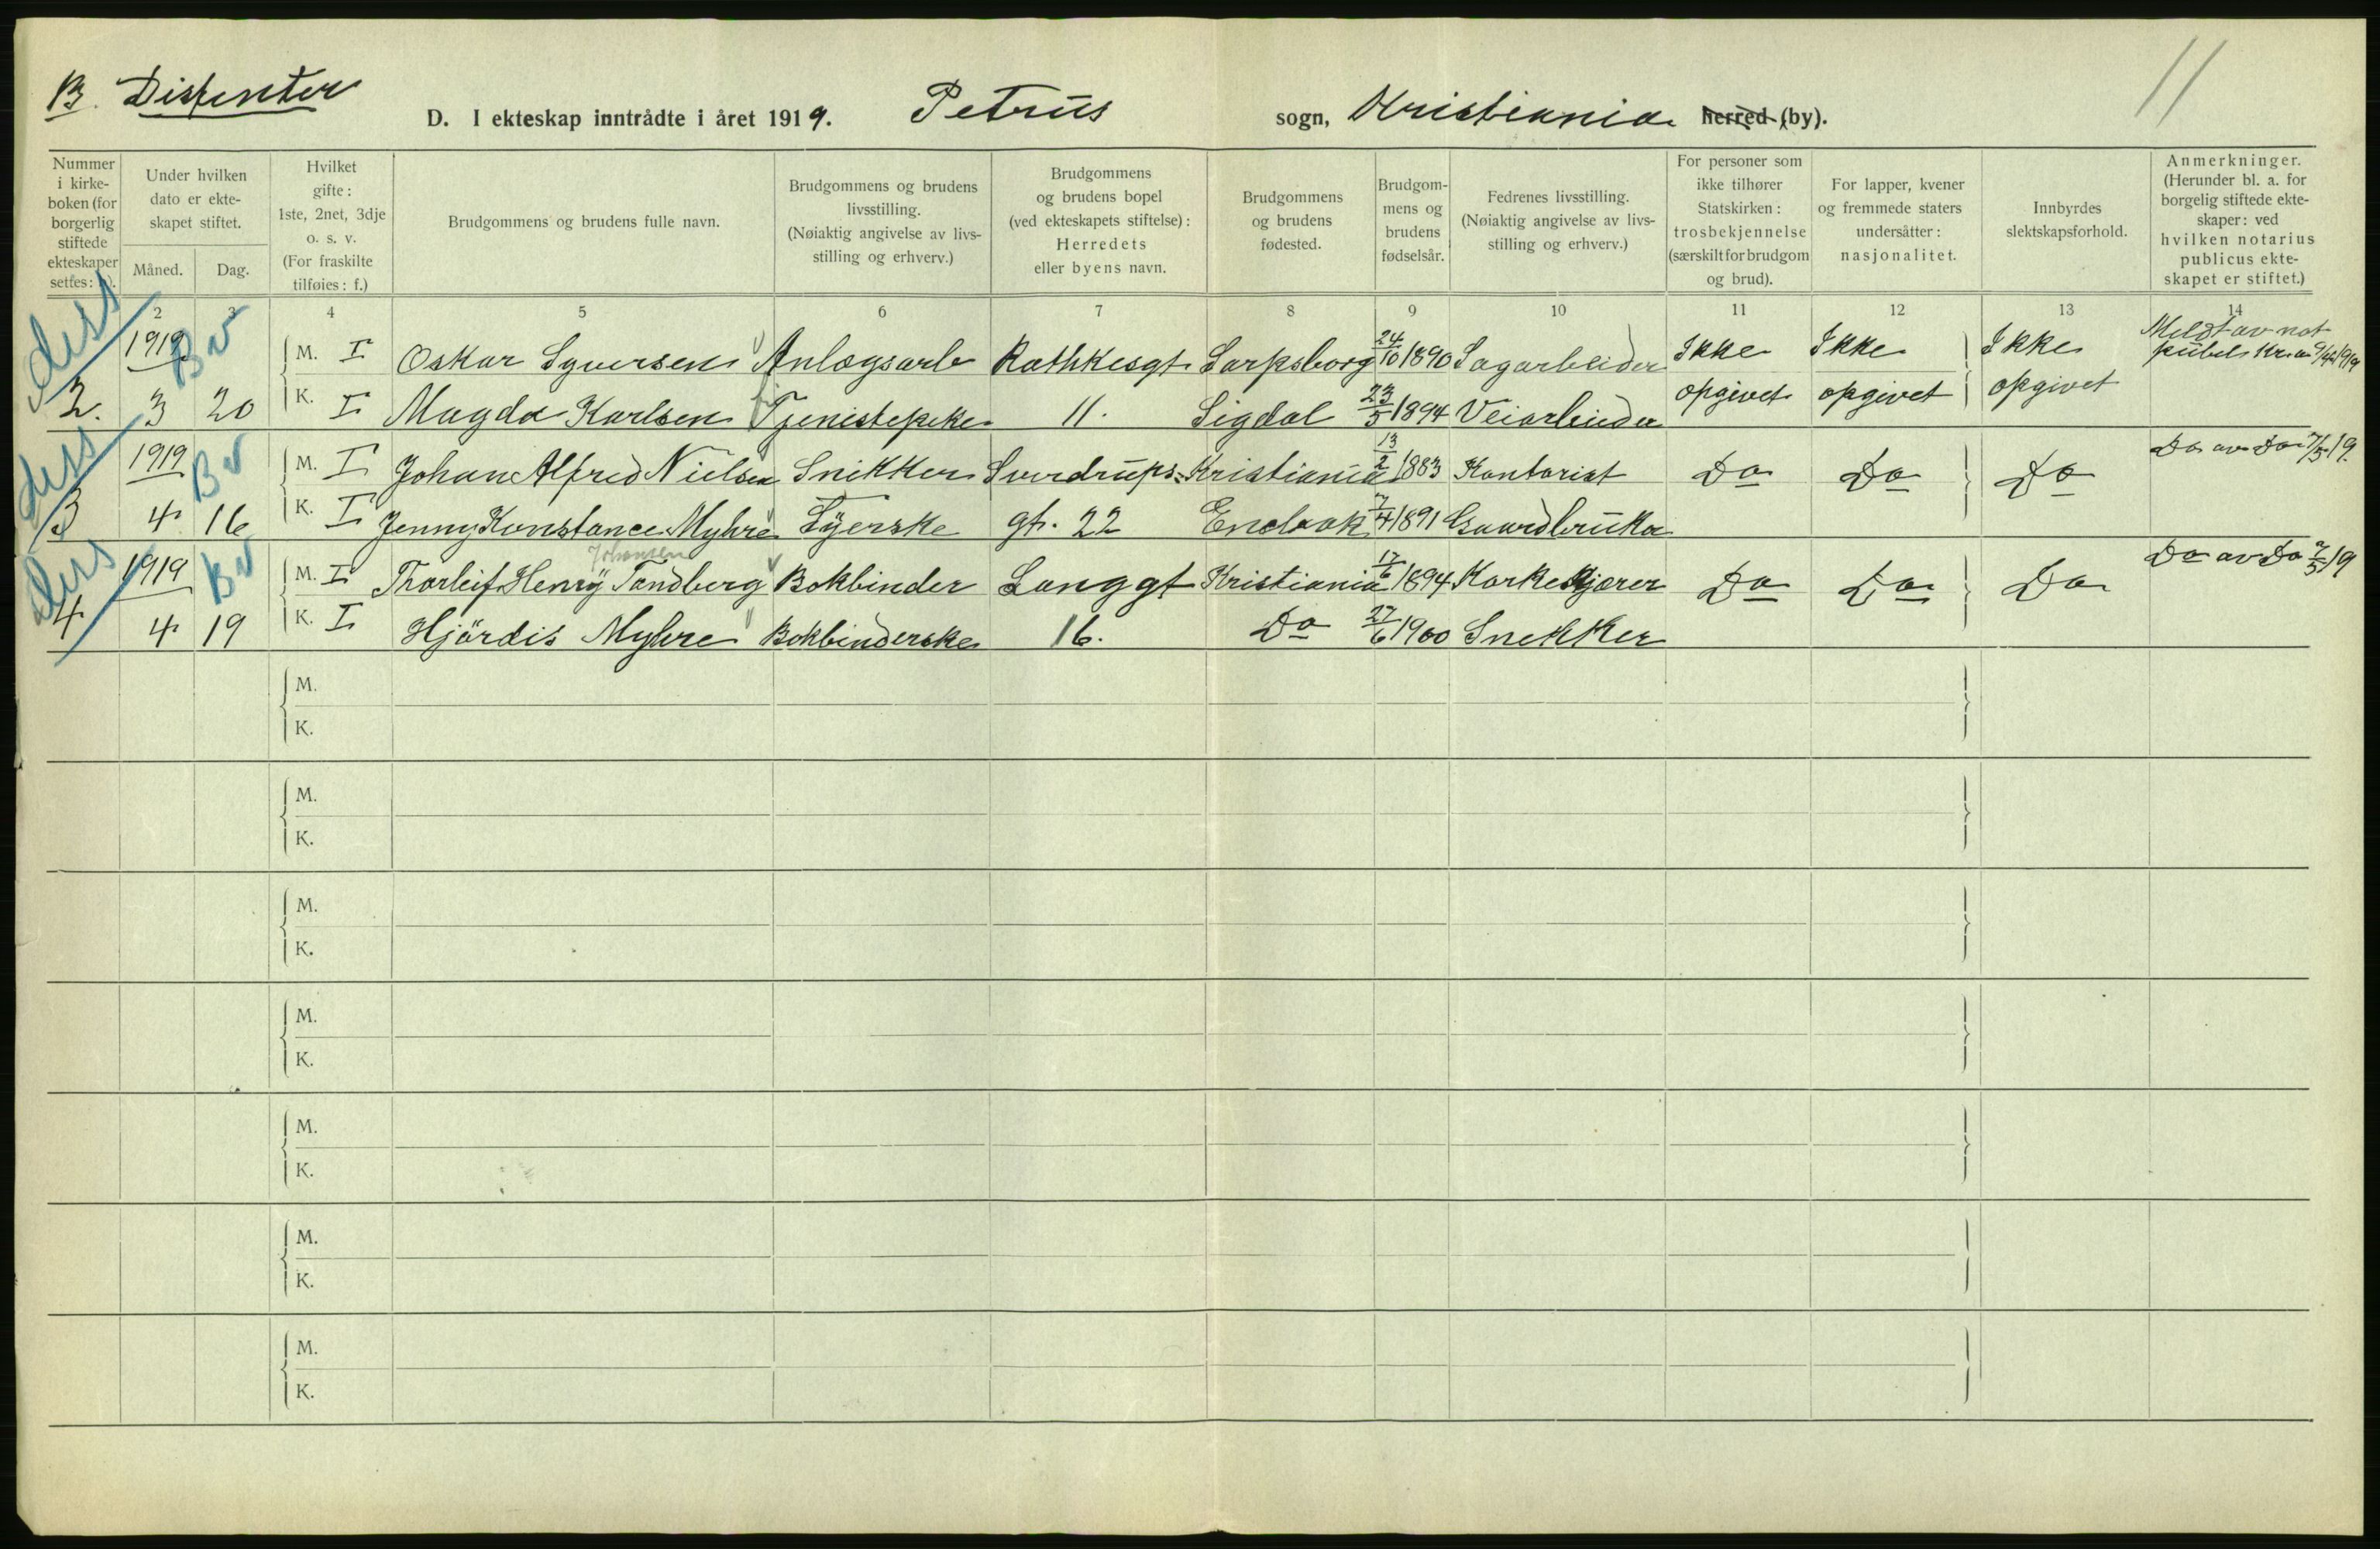 B. Dissenter
11
D. I ekteskap inntrådte i året 1919. Petrus sogn, Kristiania herred (by).
Nummer i kirkeboken (for borgerlig stiftede ekteskaper settes: b).
Under hvilken dato er ekteskapet stiftet.
Måned. Dag.
Hvilket gifte: 1ste, 2net, 3dje o. s. v. (For fraskilte tilføies: f.)
Brudgommens og brudens fulle navn.
Brudgommens og brudens livsstilling. (Nøiaktig angivelse av livsstilling og erhverv.)
Brudgommens og brudens bopel (ved ekteskapets stiftelse): Herredets eller byens navn.
Brudgommens og brudens fødested.
Brudgommens og brudens fødselsår.
Fedrenes livsstilling. (Nøiaktig angivelse av livsstilling og erhverv.)
For personer som ikke tilhører Statskirken: trosbekjennelse (særskilt for brudgom og brud).
For lapper, kvener og fremmede staters undersåtter: nasjonalitet.
Innbyrdes slektskapsforhold.
Anmerkninger. (Herunder bl. a. for borgelig stiftede ekteskaper: ved hvilken notarius publicus ekteskapet er stiftet.)
2 3 4 5 6 7 8 9 10 11 12 13 14
diss 1919 Bv M. I Oskar Syversen Anlægsarb Rathkesgt. Sarpsborg 24/10 1890 Sagarbeider Ikke Ikke Ikke Meldt av not
2. 3 20 K. I Magda Karlsen Tjenestepike 11. Sigdal 23/5 1894 Veiarbeider opgivet opgivet opgivet
diss 1919 Bv M. I Johan Alfred Nielsen Snikker Sverdrups- Kristiania 13/2 1883 Kontorist Do Do Do Do av Do 7/5 19.
3 4 16 K. I Jenny Konstance Myhre Syerske gt. 22 Enebak 7/4 1891 Gaardbruker
Johansen
diss 1919 Bv M. I Thorleif Henry Tandberg Bokbinder Langgt Kristiania 17/6 1894 Korkeskjærer Do Do Do Do av Do 7/5 19
4 4 19 K. I Hjördis Myhre Bokbinderske 16. Do 27/6 1900 Snekker
M.
K.
M.
K.
M.
K.
M.
K.
M.
K.
M.
K.
M.
K.